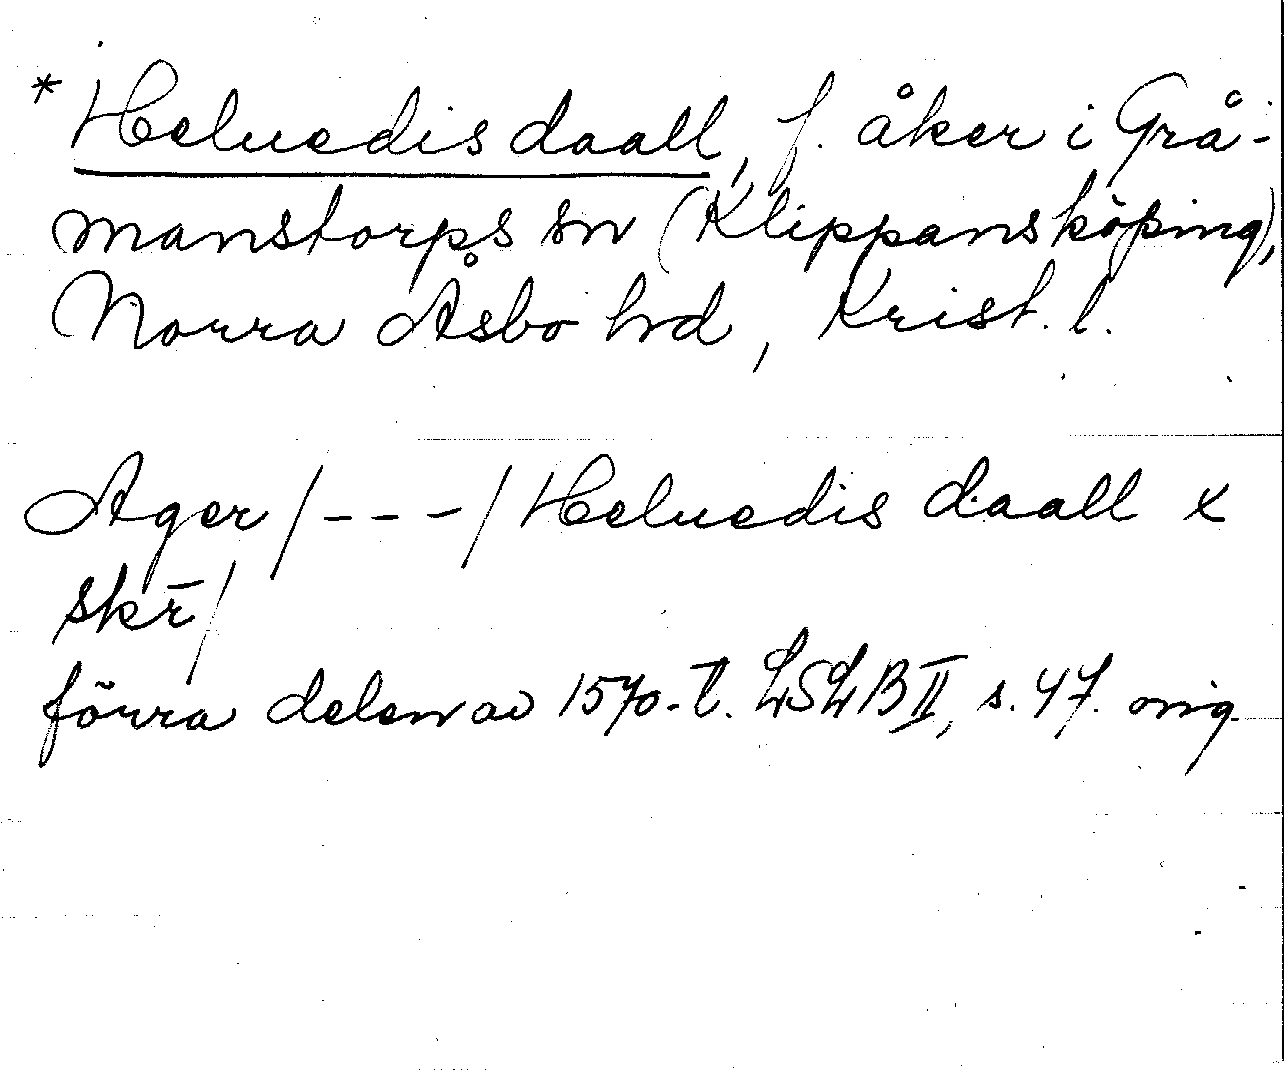 * Heluedis daall, f. åker i Grå-
manstorps sn (Klippans köping),
Norra Åsbo hd, Krist. l.
Ager /---/ Heluedis daall x
skr̄/
förra delen av 1570-t. LSLB II, s. 47. orig.